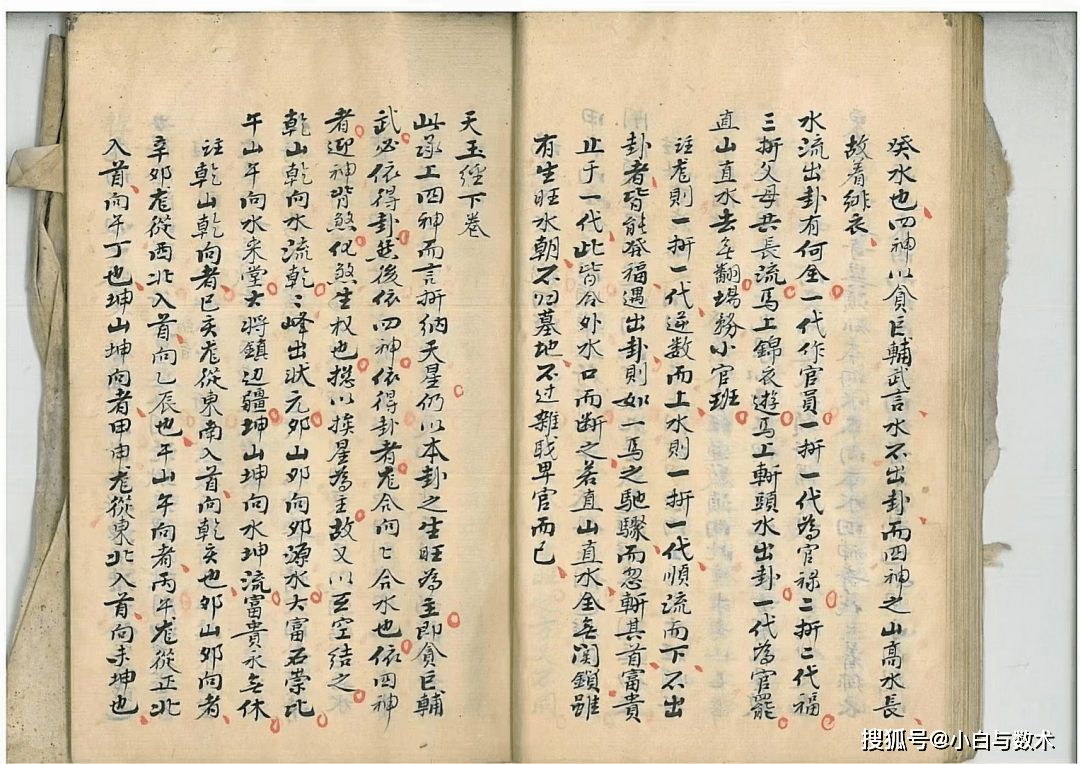 癸水也四神以貪巨輔武言水不出卦而四神之山高水長
故着緋衣
水流出卦有何全一代作官員一折一代為官祿二折二代福
三折父母共長流馬上錦衣遊馬上斬頭水出卦一代為官罷
直山直水去無翻場務小官班
註龙則一折一代逆数而上水則一折一代順流而下不出
卦者皆能發福遇出卦則如一馬之馳驟而忽斬其首富貴
止于一代此皆合外水口而断之若直山直水全無関鎖雖
有生旺水朝不归墓地不过雜職卑官而已
天玉經下卷
此承上四神而言折納天星仍以本卦之生旺為主即貪巨輔
武必依得卦然後依四神依得卦者龙合向〻合水也依四神
者迎神背煞化煞生权也揔以挨星為主故又以五空結之
乾山乾向水流乾〻峰出状元卯山卯向卯源水大富石崇比
午山午向水来堂大將鎮边疆坤山坤向水坤流富貴永無休
註乾山乾向者巳亥龙從東南入首向乾亥也卯山卯向者
辛卯龙從西北入首向乙辰也午山午向者丙午龙從正北
入首向午丁也坤山坤向者甲申龙從東北入首向未坤也
搜狐号@小白与数术